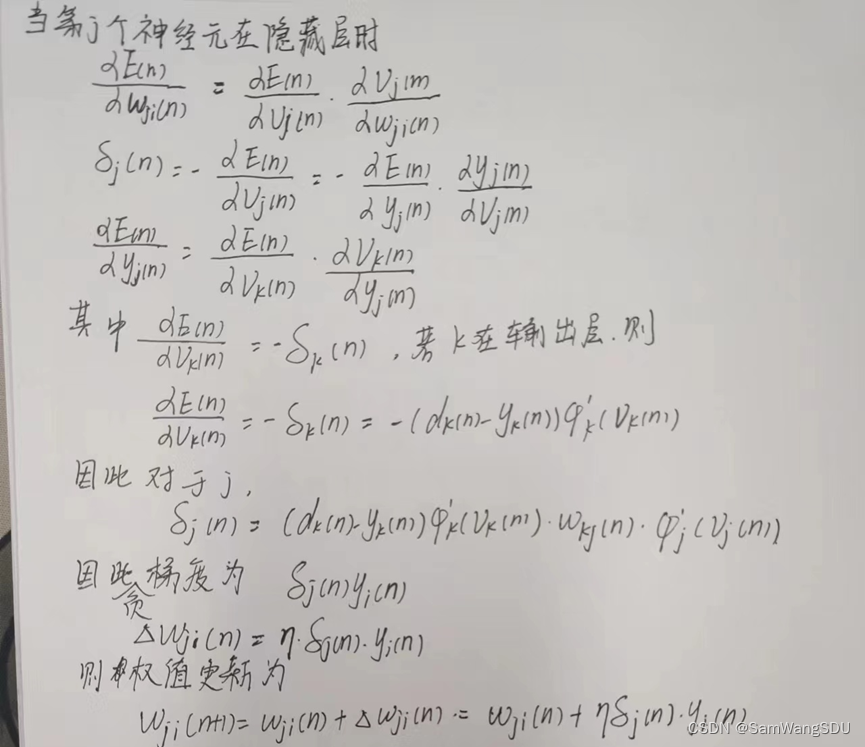 当第j个神经元在隐藏层时
∂E(n)/∂wji(n) = ∂E(n)/∂vj(n) · ∂vj(n)/∂wji(n)
δj(n) = - ∂E(n)/∂vj(n) = - ∂E(n)/∂yj(n) · ∂yj(n)/∂vj(n)
∂E(n)/∂yj(n) = ∂E(n)/∂vk(n) · ∂vk(n)/∂yj(n)
其中 ∂E(n)/∂vk(n) = -δk(n) , 若k在输出层.则
∂E(n)/∂vk(n) = -δk(n) = -(dk(n)-yk(n))φ'k(vk(n))
因此对于j,
δj(n) = (dk(n)-yk(n))φ'k(vk(n)·wkj(n)·φ'j(vj(n))
因此负梯度为 δj(n)yi(n)
Δwji(n) = η·δj(n)·yi(n)
则权值更新为
wji(n+1) = wji(n) + Δwji(n) = wji(n) + ηδj(n)·yi(n)
CSDN @SamWangSDU